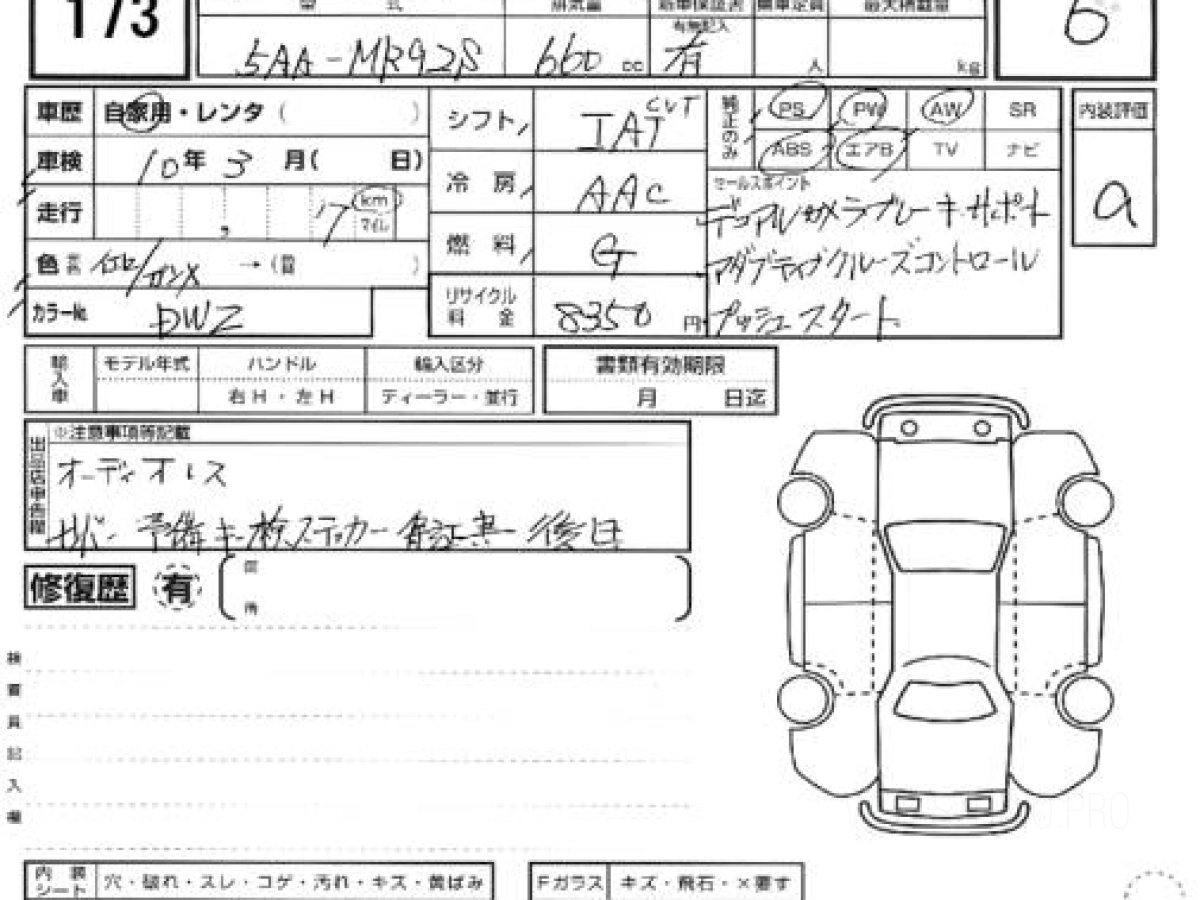 173
型 式 排気量 新車保証書 乗車定員 最大積載量
有無記入
5AA-MR92S 660 cc 有 人 kg
6
車歴 自家用・レンタ ( )
シフト IAT CVT
純正のみ PS PW AW SR
ABS エアB TV ナビ
内装評価
a
車検 10年 3 月( 日)
冷房 AAC
セールスポイント
デュアルカメラブレーキサポート
アダプティブクルーズコントロール
プッシュスタート
走行 , 17 km
マイル
燃料 G
色 →( )
リサイクル料金 8350 円
カラー№ DWZ
輸入車 モデル年式 ハンドル 輸入区分
右H・左H ディーラー・並行
書類有効期限
月 日迄
出品店申告欄
※注意事項等記載
オーディオレス
予備キー 検ステッカー 保証書 後日
修復歴 有
箇所
検査員記入欄
内装シート 穴・破れ・スレ・コゲ・汚れ・キズ・黄ばみ
Fガラス キズ・飛石・×要す